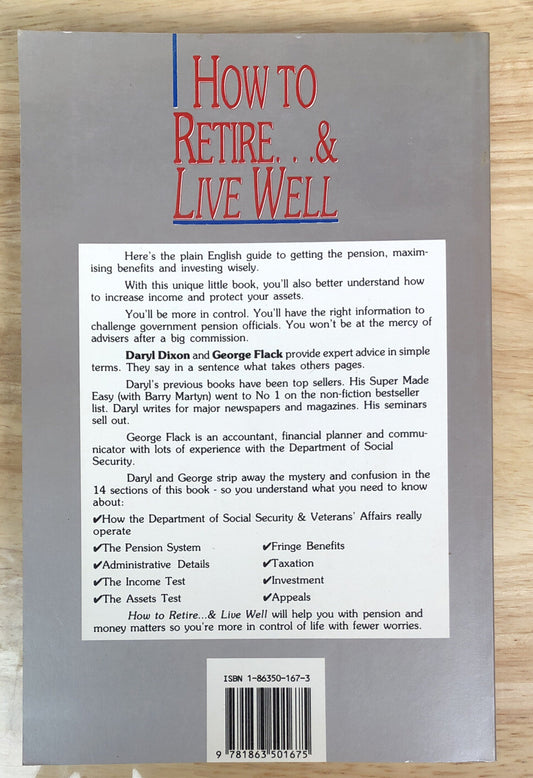 HOW TO
RETIRE...&
LIVE WELL
Here's the plain English guide to getting the pension, maxim-
ising benefits and investing wisely.
With this unique little book, you'll also better understand how
to increase income and protect your assets.
You'll be more in control. You'll have the right information to
challenge government pension officials. You won't be at the mercy of
advisers after a big commission.
Daryl Dixon and George Flack provide expert advice in simple
terms. They say in a sentence what takes others pages.
Daryl's previous books have been top sellers. His Super Made
Easy (with Barry Martyn) went to No 1 on the non-fiction bestseller
list. Daryl writes for major newspapers and magazines. His seminars
sell out.
George Flack is an accountant, financial planner and commu-
nicator with lots of experience with the Department of Social
Security.
Daryl and George strip away the mystery and confusion in the
14 sections of this book - so you understand what you need to know
about:
✔How the Department of Social Security & Veterans' Affairs really
operate
✔The Pension System ✔Fringe Benefits
✔Administrative Details ✔Taxation
✔The Income Test ✔Investment
✔The Assets Test ✔Appeals
How to Retire...& Live Well will help you with pension and
money matters so you're more in control of life with fewer worries.
ISBN 1-86350-167-3
9 781863 501675